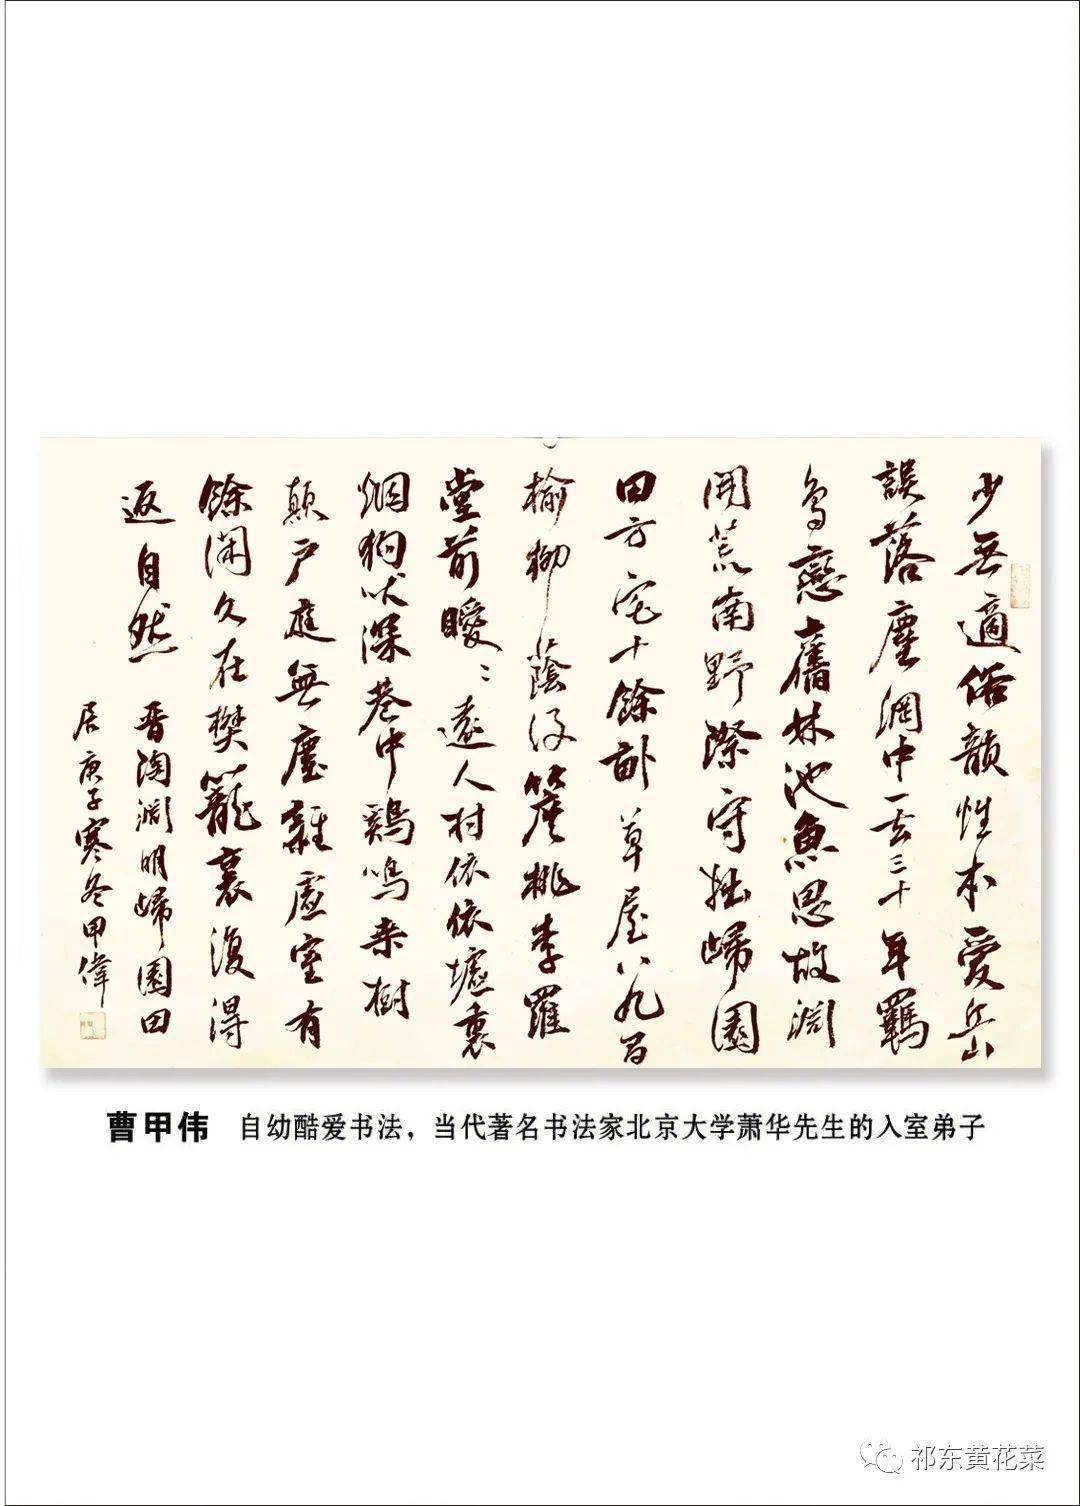 少无適俗韻性本愛丘山
誤落塵網中一去三十年羈
鳥戀舊林池魚思故淵
開荒南野際守拙歸園
田方宅十餘畝草屋八九間
榆柳蔭後簷桃李羅
堂前曖〻遠人村依依墟裏
烟狗吠深巷中鷄鳴桑樹
顛户庭無塵雜虛室有
餘閑久在樊籠裏復得
返自然 晋陶淵明歸園田
居庚子寒冬甲偉
曹甲伟 自幼酷爱书法，当代著名书法家北京大学萧华先生的入室弟子
祁东黄花菜